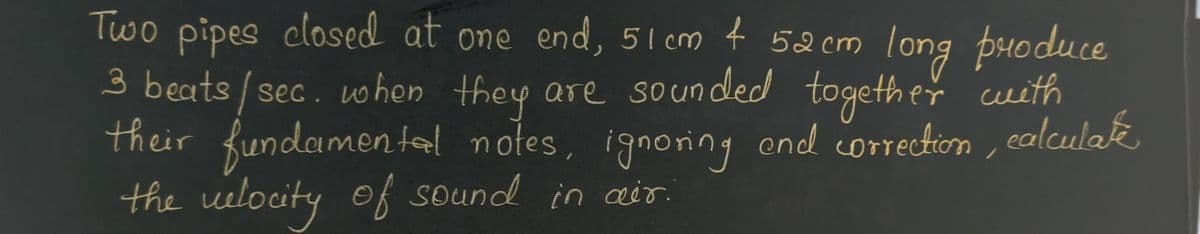 Two pipes closed at one end, 51 cm & 52 cm long produce
3 beats/sec. when they are sounded together with
their fundamental notes, ignoring end correction, calculate
the velocity of sound in air.